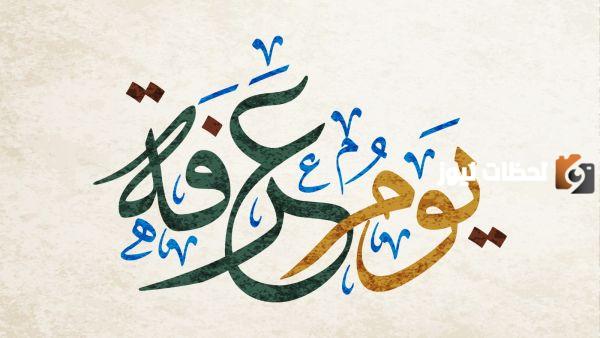 يَومُ عَرَفَة
لحظات نيوز